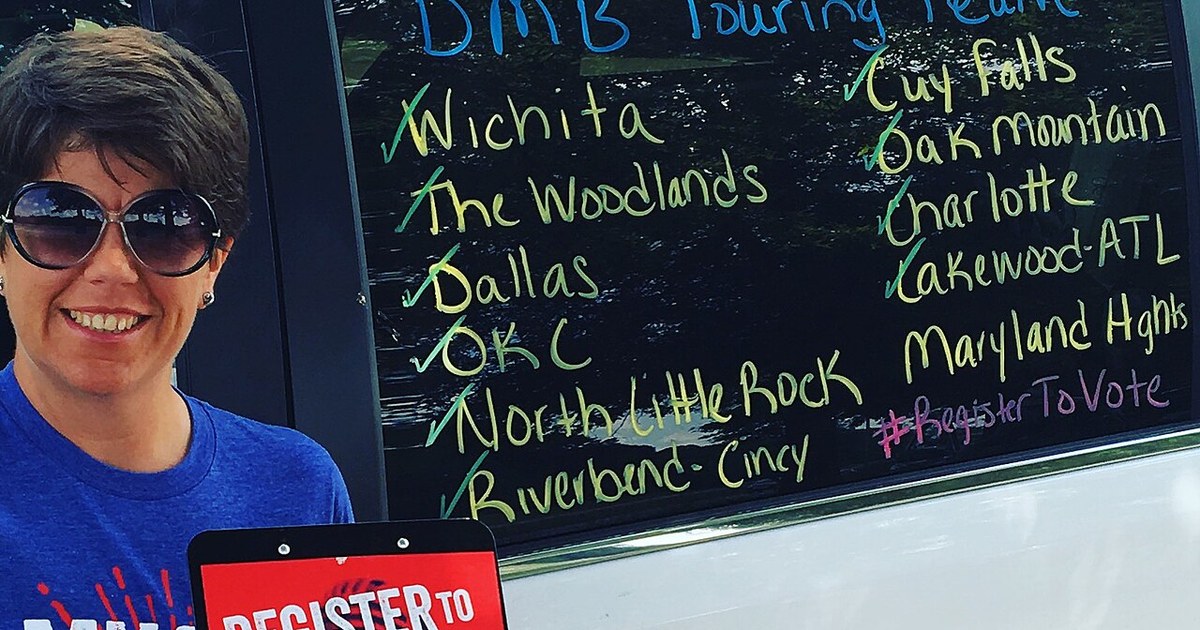 DMB Touring Team
Wichita
The Woodlands
Dallas
OKC
North Little Rock
Riverbend-Cincy
Cuy Falls
Oak Mountain
Charlotte
Lakewood-ATL
Maryland Hghts
#RegisterToVote
REGISTER TO